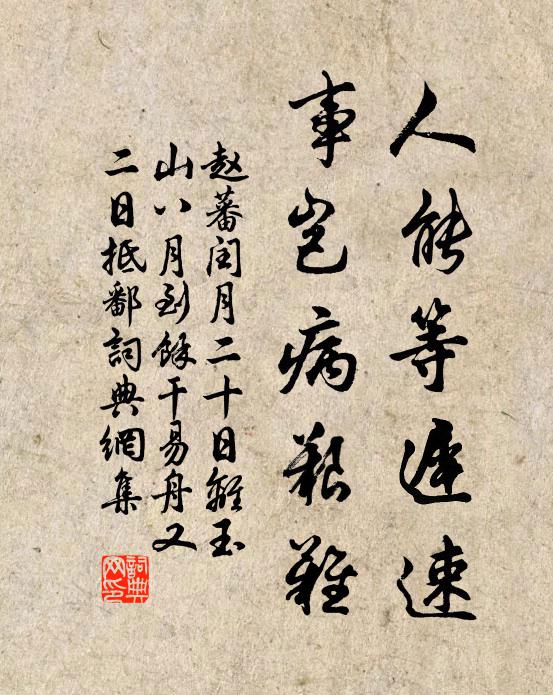 人能等遲速
事岂病艱難
赵蕃閏月二十日離玉
山八月到餘干易舟又
二日抵鄱詞典網集
詞典
网印